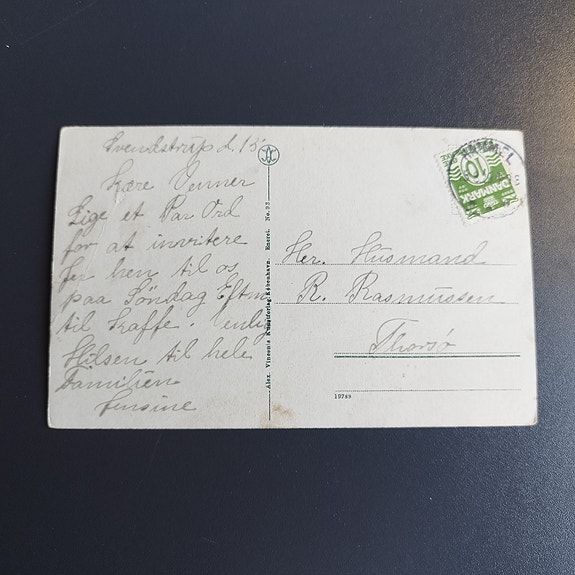 Svendstrup d. 15
Kære Venner
Lige et Par Ord
for at invitere
Jer hen til os
paa Søndag Eftm
til Kaffe. enlig
Hilsen til hele
Familien
Jensine
Alex. Vincents Kunstforlag København. Eneret. No. 93
10
DANMARK
Her. Husmand
R. Rasmussen
Thorsø
19789